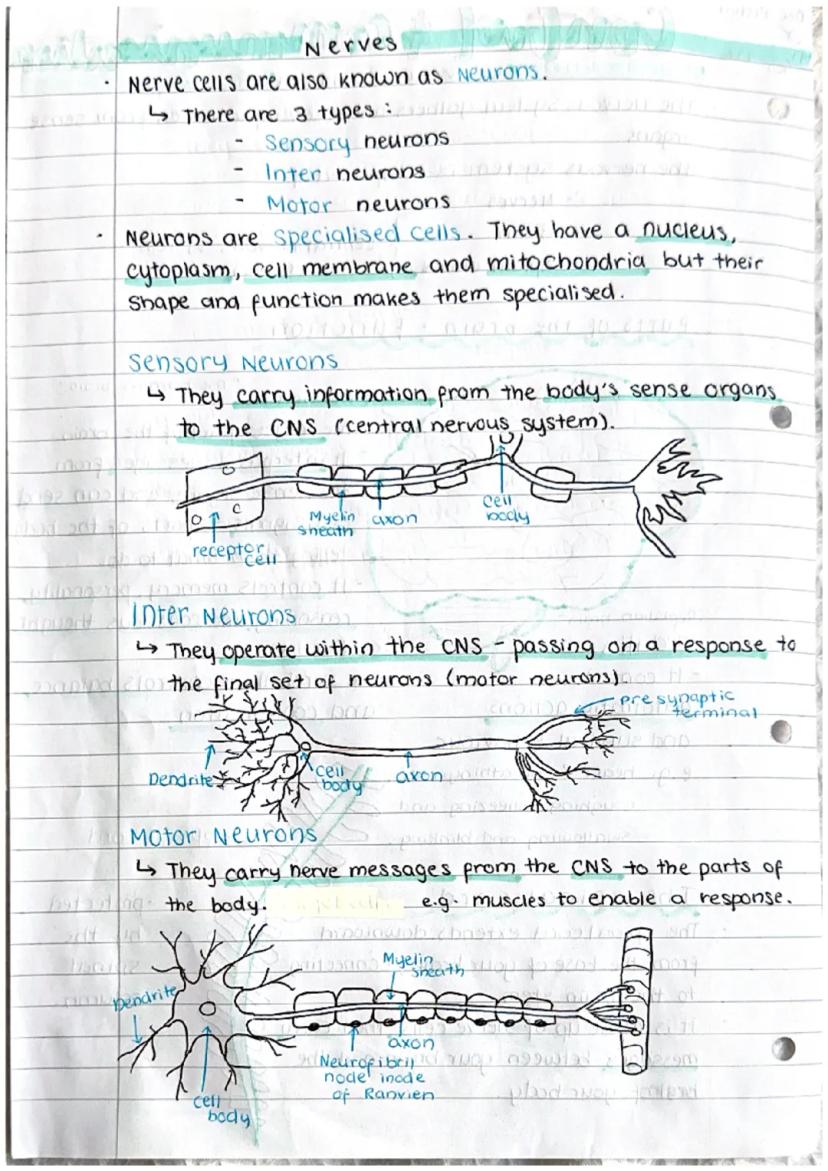 Nerves
· Nerve cells are also known as Neurons.
↳ There are 3 types :
- Sensory neurons
- Inter neurons
- Motor neurons
· Neurons are specialised cells. They have a nucleus,
cytoplasm, cell membrane and mitochondria but their
shape and function makes them specialised.
Sensory Neurons
↳ They carry information from the body's sense organs
to the CNS (central nervous system).
Myelin sheath
axon
cell body
receptor cell
Inter Neurons
↳ They operate within the CNS - passing on a response to
the final set of neurons (motor neurons)
presynaptic terminal
Dendrite
cell body
axon
Motor Neurons
↳ They carry nerve messages from the CNS to the parts of
the body. e.g. muscles to enable a response.
Myelin sheath
Dendrite
axon
Neurofibril
node inode
of Ranvien
cell body